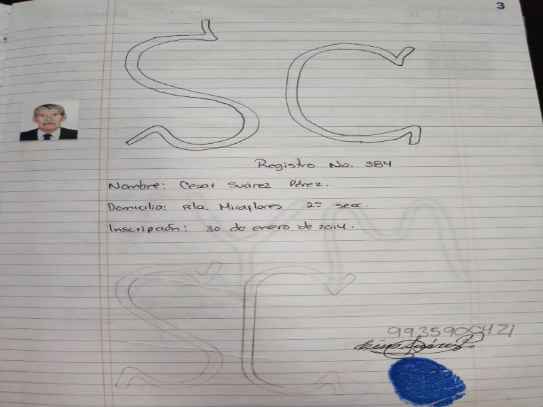 3
SC
Registro No. 384
Nombre: Cesar Suárez Pérez.
Domicilio: Miraflores 2ª secc.
Inscripción: 30 de enero de 2014.
SC